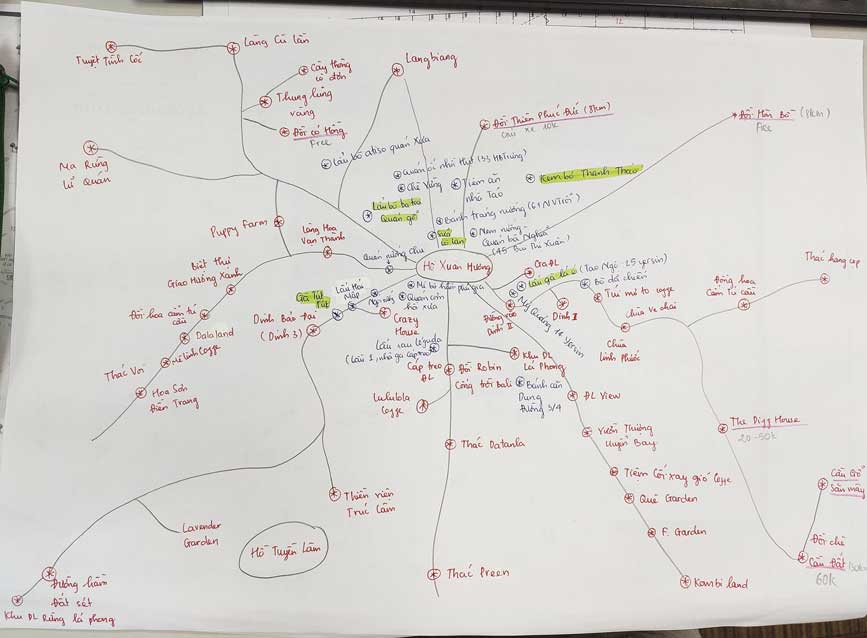 Tuyệt Tình Cốc
Làng Cù Lần
Cây thông
cô đơn
Thung lũng
vàng
Đồi cỏ Hồng
Free
Langbiang
Đồi Thiên Phúc Đức (8km)
Chi xe 10k
Đồi Mân Bồ (8km)
Free
Ma Rừng
Lữ Quán
Lẩu bò atiso quán Xưa
Chè Vững
Tiệm ăn
nhà Táo
Kem bơ Thanh Thảo
Lẩu bò ba toa
Quán gỗ
Bánh tráng nướng (61 NVTrỗi)
Nem nướng
Quán bà Nghĩa
(45 Bùi Thị Xuân)
Puppy Farm
Làng Hoa
Vạn Thành
Quán nướng Chu
Hồ Xuân Hương
Biệt thự
Giáo Hường Xanh
Đồi hoa cẩm tú
cầu
Dalaland
Mê linh Coffee
Thác Voi
Hoa Sơn
Điền Trang
Gà Tút
Tút
Lẩu Hai
Mập
Dinh Bảo Đại
(Dinh 3)
Crazy
House
Quán cơm
nhà xưa
Ga ĐL
Lẩu gà lá é (Tao Ngộ - 25 yersin)
Bò đá chiên
Dinh I
Đường vào
Dinh II
Mỳ Quảng 1B yersin
Túi mơ to coffee
Chùa ve chai
Chùa
Linh Phước
Đồng hoa
Cẩm Tú cầu
Thác hang cọp
Cáp treo
ĐL
Đồi Robin
Cổng trời Bali
Lululola
Coffee
Khu DL
Lá Phong
Bánh căn
Dung
Đường 3/4
ĐL View
Vườn Thượng
Uyển Bay
Tiệm Cối xay gió Coffee
Quê Garden
F. Garden
Kombi land
Thác Datanla
Thác Prenn
The Digg House
20-50k
Cầu Gỗ
Săn mây
Đồi chè
Cầu Đất
60k
Thiền viện
Trúc Lâm
Lavender
Garden
Hồ Tuyền Lâm
Đường hầm
Đất sét
Khu DL Rừng lá phong